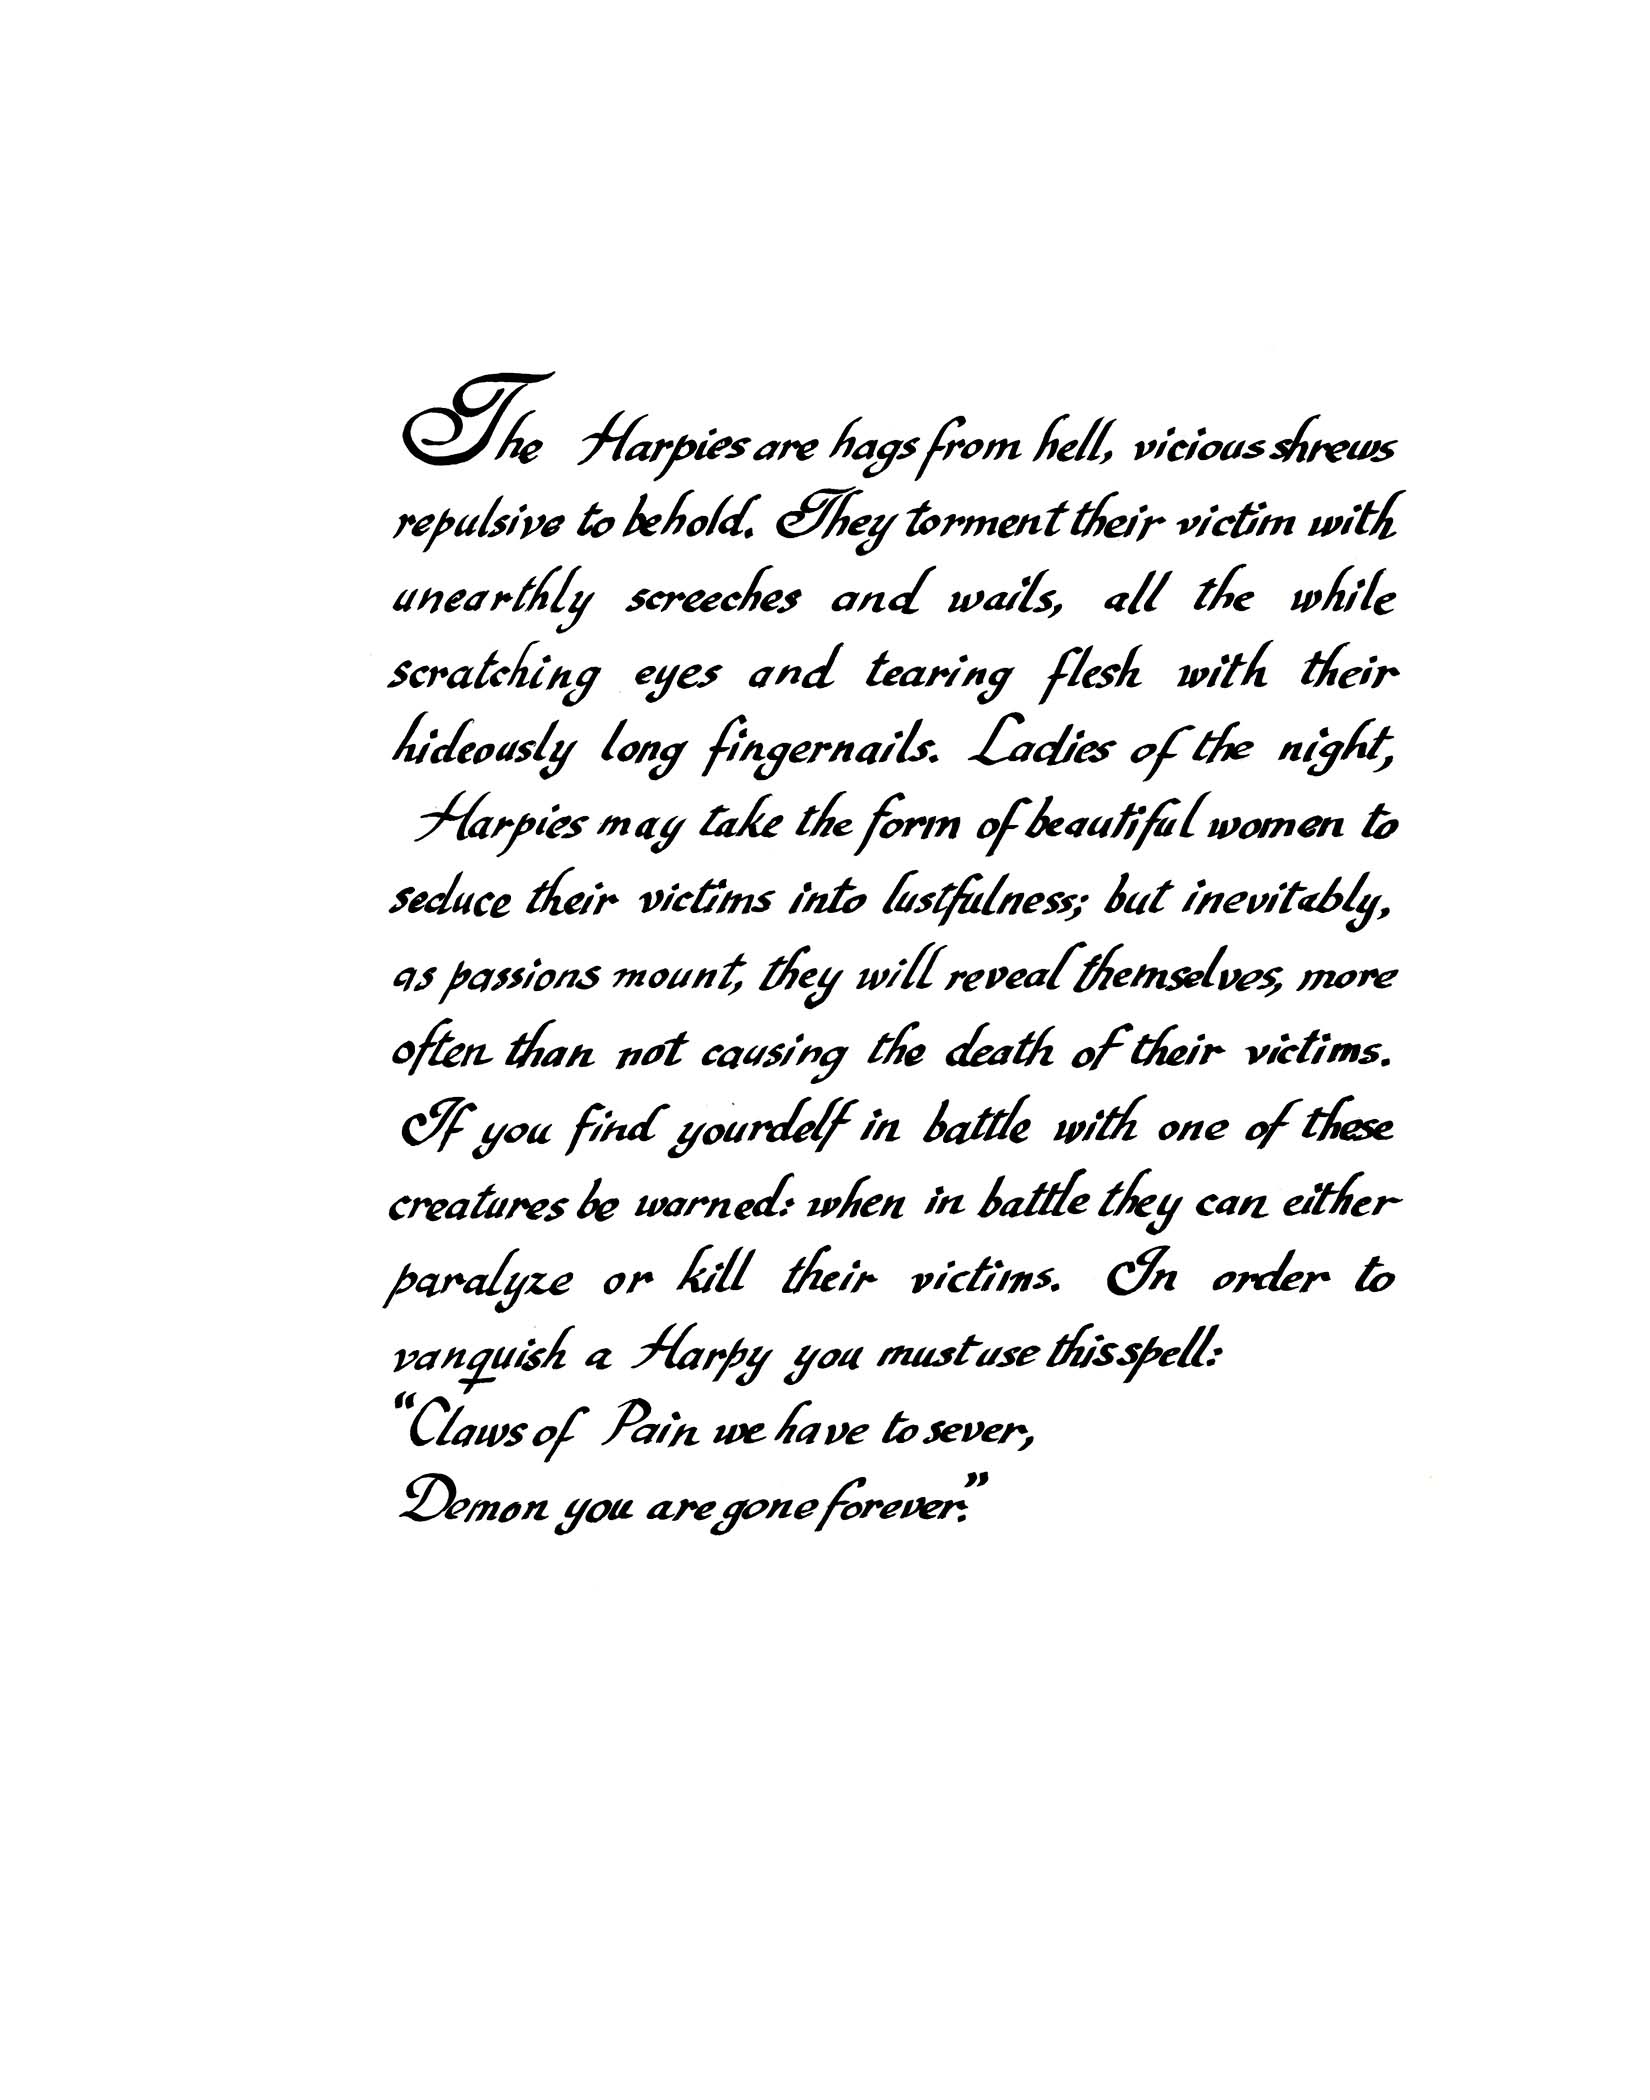 The Harpies are hags from hell, vicious shrews
repulsive to behold. They torment their victim with
unearthly screeches and wails, all the while
scratching eyes and tearing flesh with their
hideously long fingernails. Ladies of the night,
Harpies may take the form of beautiful women to
seduce their victims into lustfulness; but inevitably,
as passions mount, they will reveal themselves, more
often than not causing the death of their victims.
If you find yourdelf in battle with one of these
creatures be warned: when in battle they can either
paralyze or kill their victims. In order to
vanquish a Harpy you must use this spell:
“Claws of Pain we have to sever,
Demon you are gone forever.”